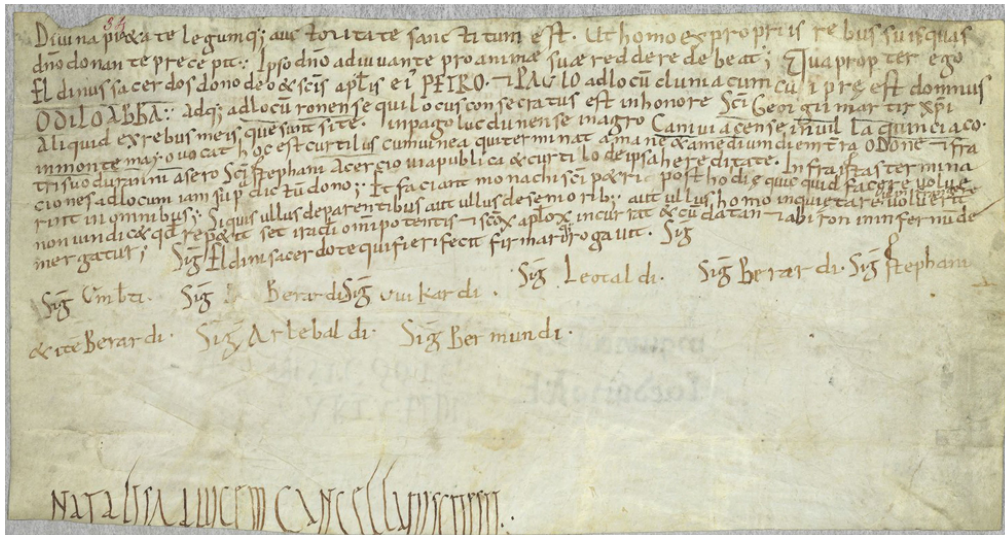 84
Divina pietate legumq; auctoritate sanctitum est. Ut homo ex propriis rebus suis quas
dn̄o donante precepit. Ipso dn̄o adiuvante pro animæ suæ reddere debeat; Qua propter ego
Eldinus sacerdos dono dēo & scīs aplīs eī PETRO. & PAULO ad locū cluniacum cū ipr̨ę est domnus
ODILO ABBA; adq; ad locū ronense qui locus consecratus est in honore Scī Georgii martir xp̄i
Aliquid ex rebus meis que sunt site. in pago lucdunense in agro Caniviacense in vil la quinciaco.
in monte maiovo cat hoc est curtilus cum vinea qui terminat a mane & a medium diem tra ODONE & fra
tris uo durnīnī a sero Scī stephanī a cercio via publica & curtilo de ipsa hereditate. Infra istas termina
ciones ad locum iam sup̄ dictū dono; Et faciant monachi scī petri post hodie quic quid facere volue
rint in omnibus; Si quis ullus de parentibus aut ullus de seniorib; aut ullus homo inquietare voluerit
non vindic& qđ rep&it set irā dī om̄ipotentis & scōx aplox incurrat & cū datan & abiron in infernū de
mergatur; Sig̅ Eldini sacerdote qui fieri fecit firmar rogavit. Sig̅
Sig̅ Leotaldi. Sig̅ Berardi. Sig̅ stephani
Sig̅ Umb̄ti. Sig̅ Berardi Sig̅ vvikardi.
& itē Berardi. Sig̅ Arlebaldi. Sig̅ Bermundi.